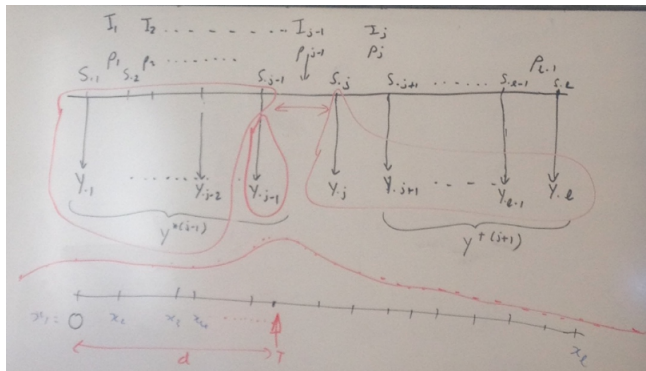 I₁ I₂ - - . . . . . . . . . . . I_{j-1} I_j
ρ₁ ρ₂ . . . . . . . ρ_{j-1} ρ_j ρ_{l-1}
S.₁ S.₂ S.j-1 S.j S.j+1 . . . . . . S.l-1 S.l
Y.₁ . . . . . . . Y.j-2 . . Y.j-1 Y.j Y.j+1 - - - - Y.l-1 Y.l
Y*(j-1) Y+(j+1)
x₁ = 0 . . . . . . . x_l
d T